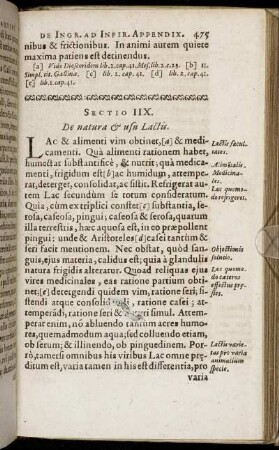 DE INGR. AD INFIR. APPENDIX. 475
nibus & frictionibus. In animi autem quiete
maxima patiens est detinendus.
[a] Vide Dioscoridem lib. 2. cap. 41. Mes. lib. 2. c. 25. [b] 11.
Simpl. tit. Gallinæ. [c] lib. 2. cap. 41. [d] lib. 2. cap. 41.
[e] lib. 2. cap. 41.
SECTIO IIX.
De natura & usu Lactis.
LAc & alimenti vim obtinet, [a] & medi-
camenti. Quà alimenti rationem habet,
humectat substantificè, & nutrit; quà medica-
menti, frigidum est [b] ac humidum, attempe-
rat, deterget, consolidat, ac sistit. Refrigerat au-
tem Lac secundùm se totum consideratum.
Quia, cùm ex triplici constet [c] substantia, se-
rosa, caseosa, pingui; caseosa & serosa, quarum
illa terrestris, hæc aquosa est, in eo præpollent
pingui; unde & Aristoteles [d] casei tantùm &
seri facit mentionem. Nec obstat, quòd san-
guis, ejus materia, calidus est; quia à glandulis
natura frigidis alteratur. Quoad reliquas ejus
vires medicinales, eas ratione partium obti-
net; [e] detergendi quidem vim, ratione seri, si-
stendi atque consolidandi, ratione casei; at-
temperandi, ratione seri & casei simul. Attempe-
rat enim, nō abluendo tantùm acres humo-
res, quemadmodum aqua; sed colluendo etiam,
ob serum; & illinendo, ob pinguedinem. Por-
rò, tametsi omnibus his viribus Lac omne præ-
ditum est, varia tamen in his est differentia, pro
varia
Lactis facul-
tates.
Alimentalis.
Medicina-
les.
Lac quomo-
do refrigeret.
Objectionis
solutio.
Lac quomo-
do cæteros
effectus præ-
stet.
Lactis varie-
tas pro varia
animalium
specie.